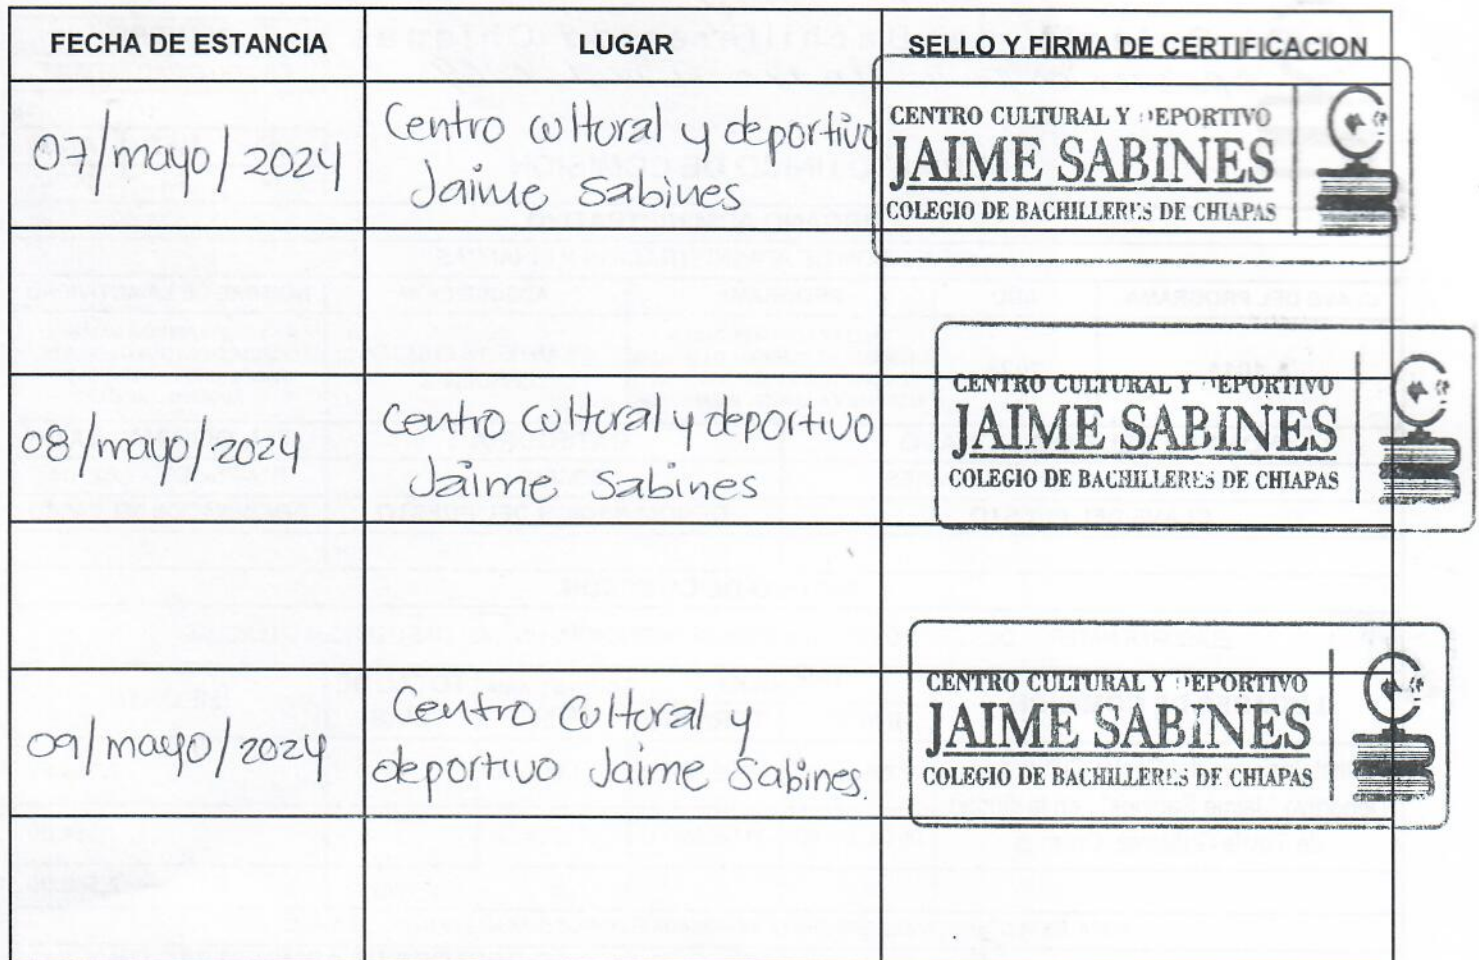 FECHA DE ESTANCIA LUGAR SELLO Y FIRMA DE CERTIFICACION
07/mayo/2024
Centro cultural y deportivo
Jaime Sabines
CENTRO CULTURAL Y DEPORTIVO
JAIME SABINES
COLEGIO DE BACHILLERES DE CHIAPAS
08/mayo/2024
Centro cultural y deportivo
Jaime Sabines
CENTRO CULTURAL Y DEPORTIVO
JAIME SABINES
COLEGIO DE BACHILLERES DE CHIAPAS
09/mayo/2024
Centro Cultural y
deportivo Jaime Sabines.
CENTRO CULTURAL Y DEPORTIVO
JAIME SABINES
COLEGIO DE BACHILLERES DE CHIAPAS